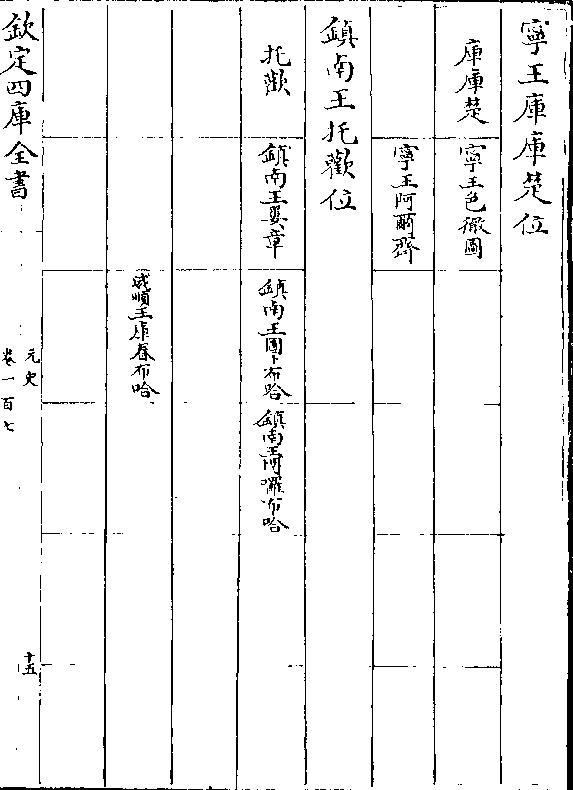 寧王庫庫楚位
庫庫楚
寧王色徹圖
寧王阿爾齊
鎮南王托歡位
托歡
鎮南王婁章
鎮南王圖卜布哈
鎮南王阿囉布哈
威順王庫春布哈
欽定四庫全書
元史
卷一百七
十五